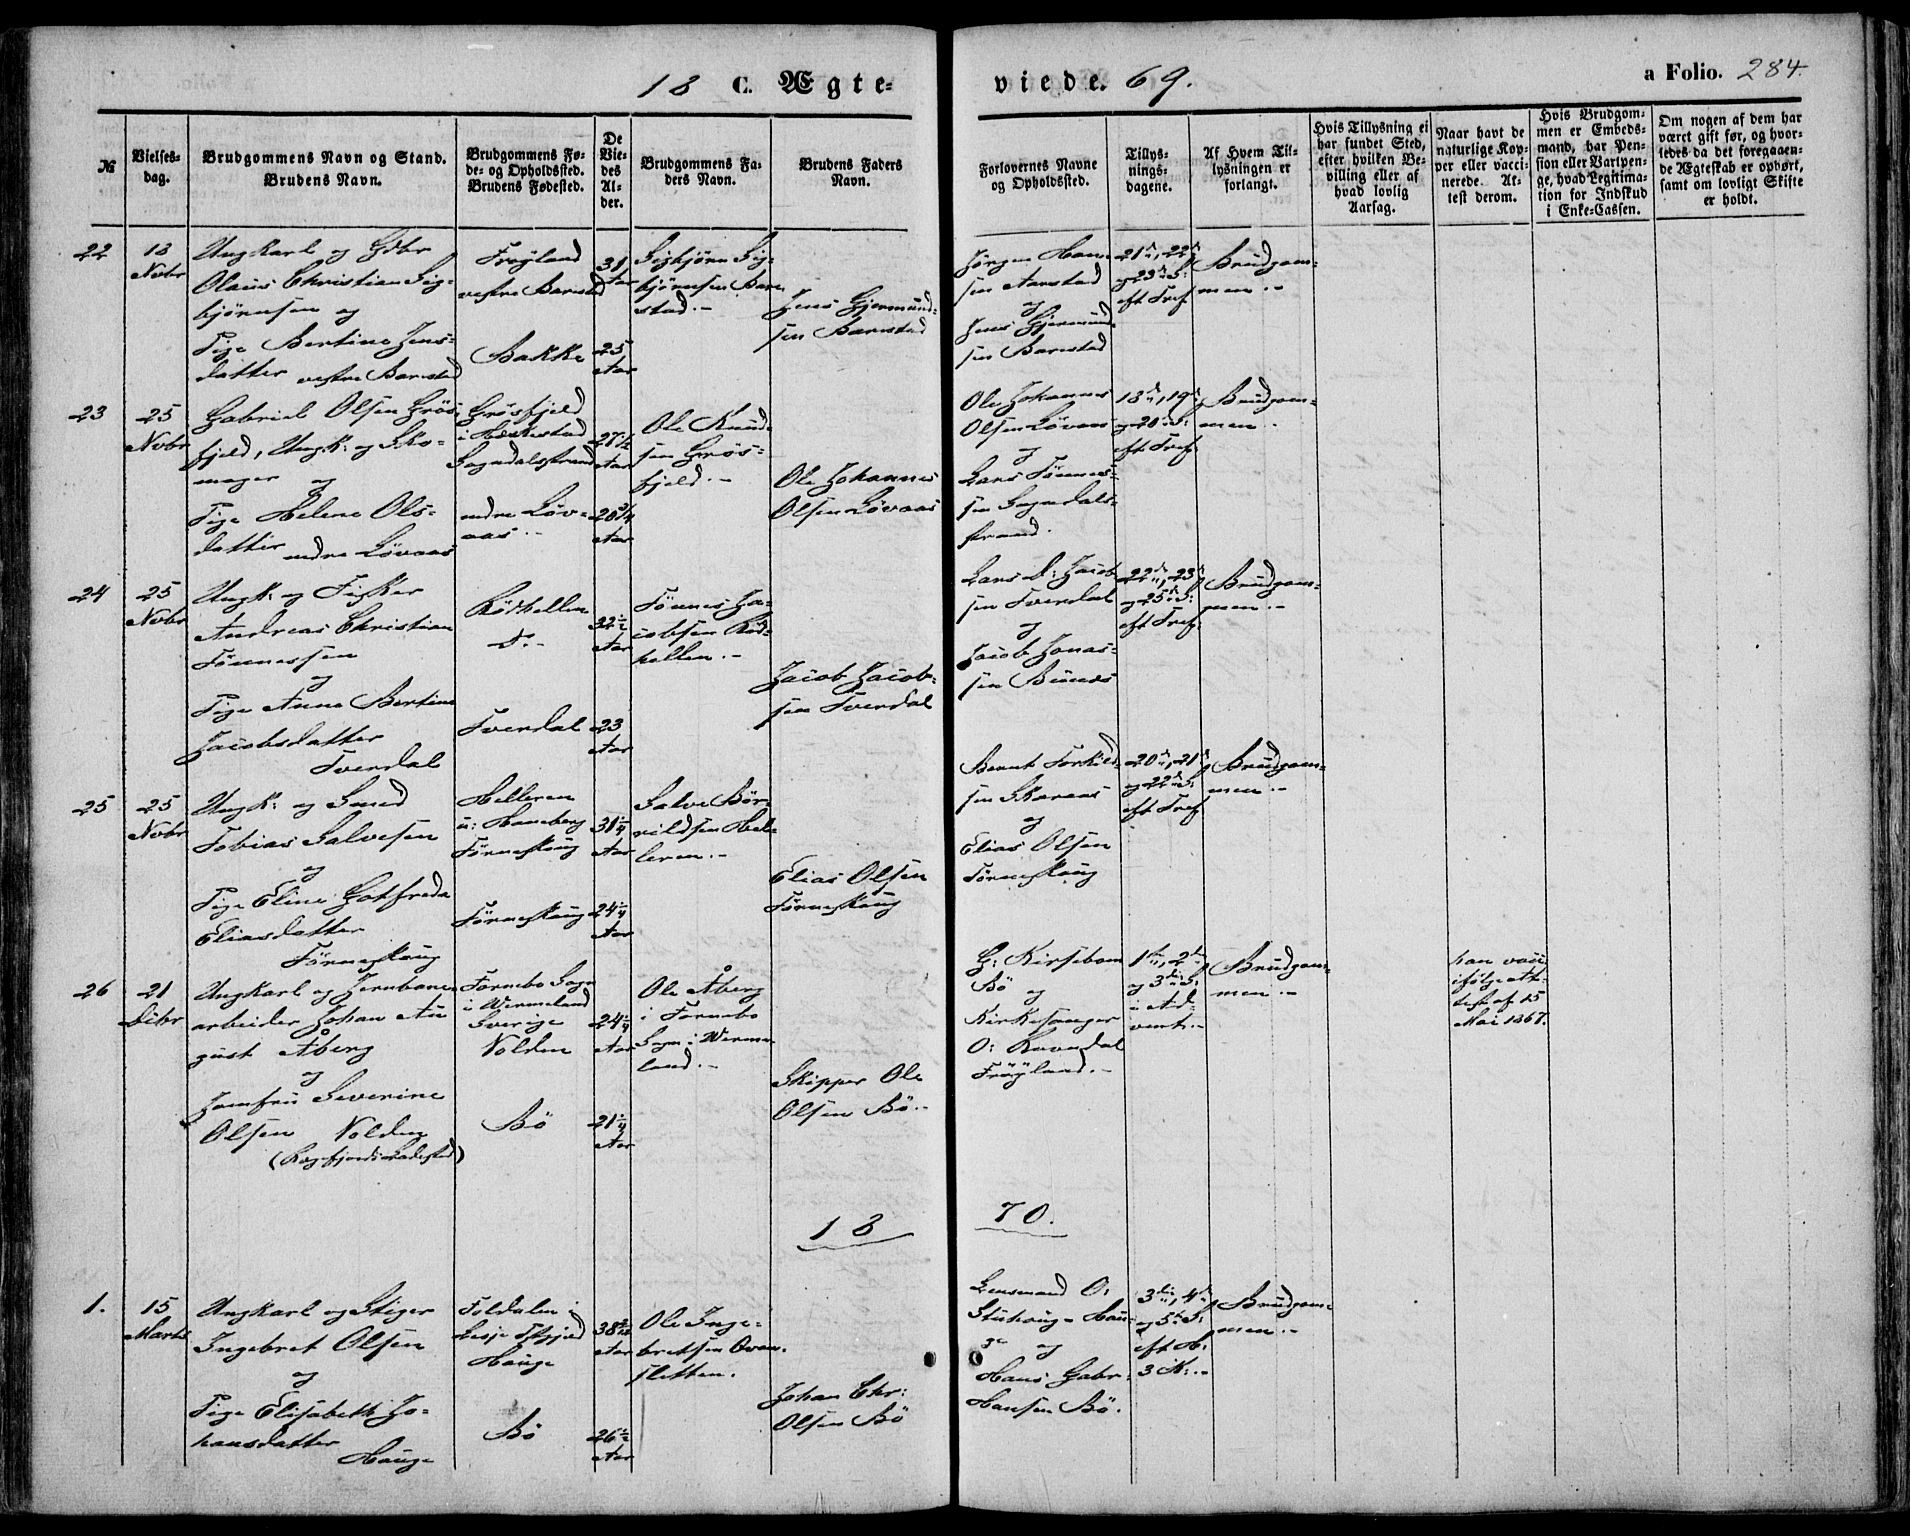 18 C. Ægte-
viede. 69.
a Folio. 284.
№
Vielses-
dag.
Brudgommens Navn og Stand.
Brudens Navn.
Brudgommens Fø-
de- og Opholdssted.
Brudens Fødested.
De
Vie-
des
Al-
der.
Brudgommens Fa-
ders Navn.
Brudens Faders
Navn.
Forlovernes Navne
og Opholdssted.
Tillys-
nings-
dagene.
Af Hvem Til-
lysningen er
forlangt.
Hvis Tillysning ei
har fundet Sted,
efter hvilken Be-
villing eller af
hvad lovlig
Aarsag.
Naar havt de
naturlige Kop-
per eller vacci-
nerede. At-
test derom.
Hvis Brudgom-
men er Embeds-
mand, har Pen-
sion eller Vartpen-
ge, hvad Legitima-
tion for Indskud
i Enke-Cassen.
Om nogen af dem har
været gift før, og hvor-
ledes da det foregaaen-
de Ægteskab er ophørt,
samt om lovligt Skifte
er holdt.
22
18
Novbr
Ungkarl og Gdbr
Olaus Christian Sig-
björnsen og
Pige Bertine Jens-
datter vestre Barstad
Frøyland
vestre Barstad
Bakke
31
Aar
25
Aar
Sigbjörn Sig-
björnsen Bar-
stad.-
Jens Gjermund-
sen Barstad
Jörgen Han-
sen Aarstad
og
Jens Gjermund-
sen Barstad
21de, 22de
og 23de S:
eft Tref
Brudgom-
men.-
23
25
Novbr
Gabriel Olsen Grös-
fjeld, Ungk: og Sko-
mager og
Pige Helene Ols-
datter nedre Lövaas
Grösfjeld
i Hæskestad
Sogndalsstrand
nedre Löv-
aas.-
27½
Aar
26¾
Aar
Ole Knud-
sen Grös-
fjeld.-
Ole Johannes
Olsen Lövaas
Ole Johannes
Olsen Lövaas
og
Lars Tönnes-
sen Sogndals-
strand.
18de, 19de
og 20de S:
eft. Tref.
Brudgom-
men.
24
25
Novbr
Ungk: og Fisker
Andreas Christian
Tönnessen
og
Pige Anne Bertine
Jacobsdatter
Tverdal
Rödhellen
do.-
Tverdal
32½
Aar
23
Aar
Tönnes Ja-
cobsen Röd-
hellen.-
Jacob Jacob-
sen Tverdal
Lars D: Jacob-
sen Tverdal
og
Jacob Jonas-
sen Bunes
22de, 23de
og 25de S:
eft Tref.
Brudgom-
men.-
25
25
Novbr
Ungk: og Smed
Tobias Salvesen
og
Pige Eline Gotfreda
Eliasdatter
Törneskaug
Helleren
u: Haneberg
Törneskaug
Törneskaug
31¼
Aar
24¼
Aar
Salve Bör-
rildsen Hel-
leren.-
Elias Olsen
Törneskaug
Bernt Torkild-
sen Skaraas
og
Elias Olsen
Törneskaug
20de, 21de
og 22de S:
eft Tref
Brudgom-
men.-
26
21
Decbr
Ungkarl og Jernbane-
arbeider Johan Au-
gust Åberg
og
Jomfru Severine
Olsen Nolden
(Rægefjords Ladested)
Fornebo Sogn
i Wermeland
Sverige
Nolden
Bö
24¼
Aar
21¼
Aar
Ole Åberg
i Fornebo
Sogn i Werme-
land.-
Skipper Ole
Olsen Bö.-
G: Kirsebom
Bö og
Kirkesanger
O: Ravndal
Fröyland.-
1ste, 2den
og 3die S:
i Ad-
vent.-
Brudgom-
men.-
han vacc
ifölge At-
test af 15
Mai 1867.
18
70.
1.
15
Marts
Ungkarl og Stiger
Ingebret Olsen
og
Pige Elisabeth Jo-
hansdatter
Hauge
Foldalen i
Lesje Præstgjeld
Hauge
Bö
38
Aar
26½
Aar
Ole Inge-
bretsen Ovan-
sletten.
Johan Chr:
Olsen Bö
Lensmand O:
Stuhaug - Hau-
ge og
Hans Gabr:
Hansen Bö.
3die, 4de
og 5te S:
eft H:
3 K:.-
Brudgom-
men.-